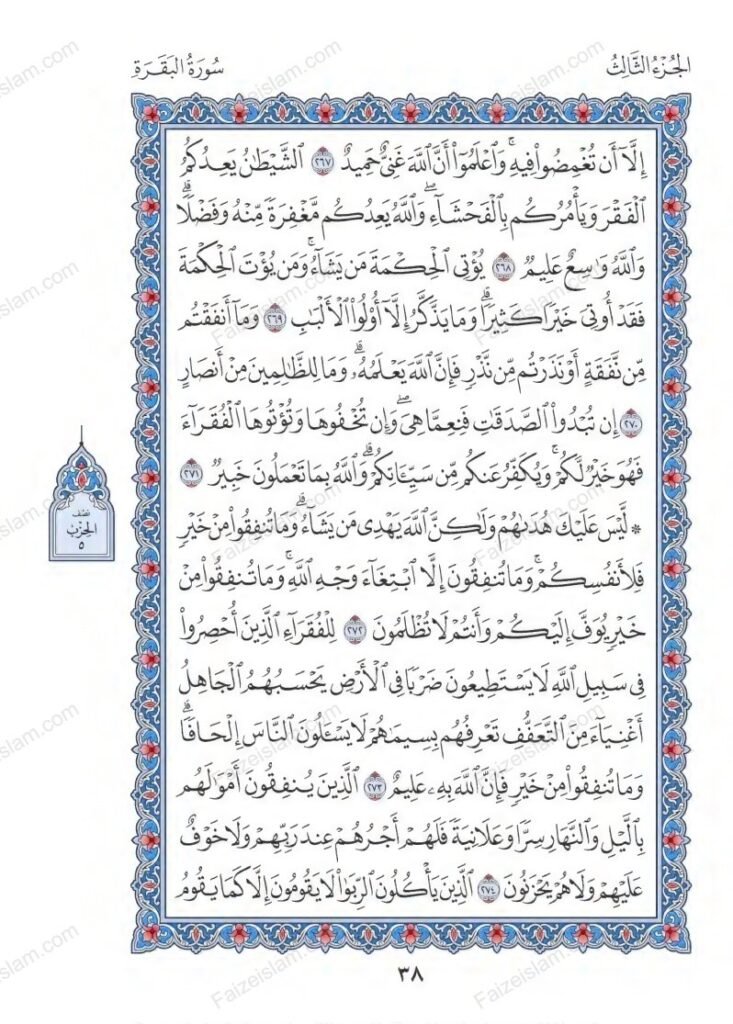 الجُزْءُ الثَّالِثُ
سُورَةُ البَقَرَةِ
إِلَّآ أَن تُغْمِضُوا۟ فِيهِ ۚ وَٱعْلَمُوٓا۟ أَنَّ ٱللَّهَ غَنِىٌّ حَمِيدٌ ٢٦٧ ٱلشَّيْطَٰنُ يَعِدُكُمُ
ٱلْفَقْرَ وَيَأْمُرُكُم بِٱلْفَحْشَآءِ ۖ وَٱللَّهُ يَعِدُكُم مَّغْفِرَةً مِّنْهُ وَفَضْلًا ۗ
وَٱللَّهُ وَٰسِعٌ عَلِيمٌ ٢٦٨ يُؤْتِى ٱلْحِكْمَةَ مَن يَشَآءُ ۚ وَمَن يُؤْتَ ٱلْحِكْمَةَ
فَقَدْ أُوتِىَ خَيْرًا كَثِيرًا ۗ وَمَا يَذَّكَّرُ إِلَّآ أُو۟لُوا۟ ٱلْأَلْبَٰبِ ٢٦٩ وَمَآ أَنفَقْتُم
مِّن نَّفَقَةٍ أَوْ نَذَرْتُم مِّن نَّذْرٍ فَإِنَّ ٱللَّهَ يَعْلَمُهُۥ ۗ وَمَا لِلظَّٰلِمِينَ مِنْ أَنصَارٍ
٢٧٠ إِن تُبْدُوا۟ ٱلصَّدَقَٰتِ فَنِعِمَّا هِىَ ۖ وَإِن تُخْفُوهَا وَتُؤْتُوهَا ٱلْفُقَرَآءَ
فَهُوَ خَيْرٌ لَّكُمْ ۚ وَيُكَفِّرُ عَنكُم مِّن سَيِّـَٔاتِكُمْ ۗ وَٱللَّهُ بِمَا تَعْمَلُونَ خَبِيرٌ ٢٧١
* لَّيْسَ عَلَيْكَ هُدَىٰهُمْ وَلَٰكِنَّ ٱللَّهَ يَهْدِى مَن يَشَآءُ ۗ وَمَا تُنفِقُوا۟ مِنْ خَيْرٍ
فَلِأَنفُسِكُمْ ۚ وَمَا تُنفِقُونَ إِلَّا ٱبْتِغَآءَ وَجْهِ ٱللَّهِ ۚ وَمَا تُنفِقُوا۟ مِنْ
خَيْرٍ يُوَفَّ إِلَيْكُمْ وَأَنتُمْ لَا تُظْلَمُونَ ٢٧٢ لِلْفُقَرَآءِ ٱلَّذِينَ أُحْصِرُوا۟
فِى سَبِيلِ ٱللَّهِ لَا يَسْتَطِيعُونَ ضَرْبًا فِى ٱلْأَرْضِ يَحْسَبُهُمُ ٱلْجَاهِلُ
أَغْنِيَآءَ مِنَ ٱلتَّعَفُّفِ تَعْرِفُهُم بِسِيمَٰهُمْ لَا يَسْـَٔلُونَ ٱلنَّاسَ إِلْحَافًا ۗ
وَمَا تُنفِقُوا۟ مِنْ خَيْرٍ فَإِنَّ ٱللَّهَ بِهِۦ عَلِيمٌ ٢٧٣ ٱلَّذِينَ يُنفِقُونَ أَمْوَٰلَهُم
بِٱلَّيْلِ وَٱلنَّهَارِ سِرًّا وَعَلَانِيَةً فَلَهُمْ أَجْرُهُمْ عِندَ رَبِّهِمْ وَلَا خَوْفٌ
عَلَيْهِمْ وَلَا هُمْ يَحْزَنُونَ ٢٧٤ ٱلَّذِينَ يَأْكُلُونَ ٱلرِّبَوٰا۟ لَا يَقُومُونَ إِلَّا كَمَا يَقُومُ
نصف
الحِزْب
٥
٣٨
Faizeislam.com